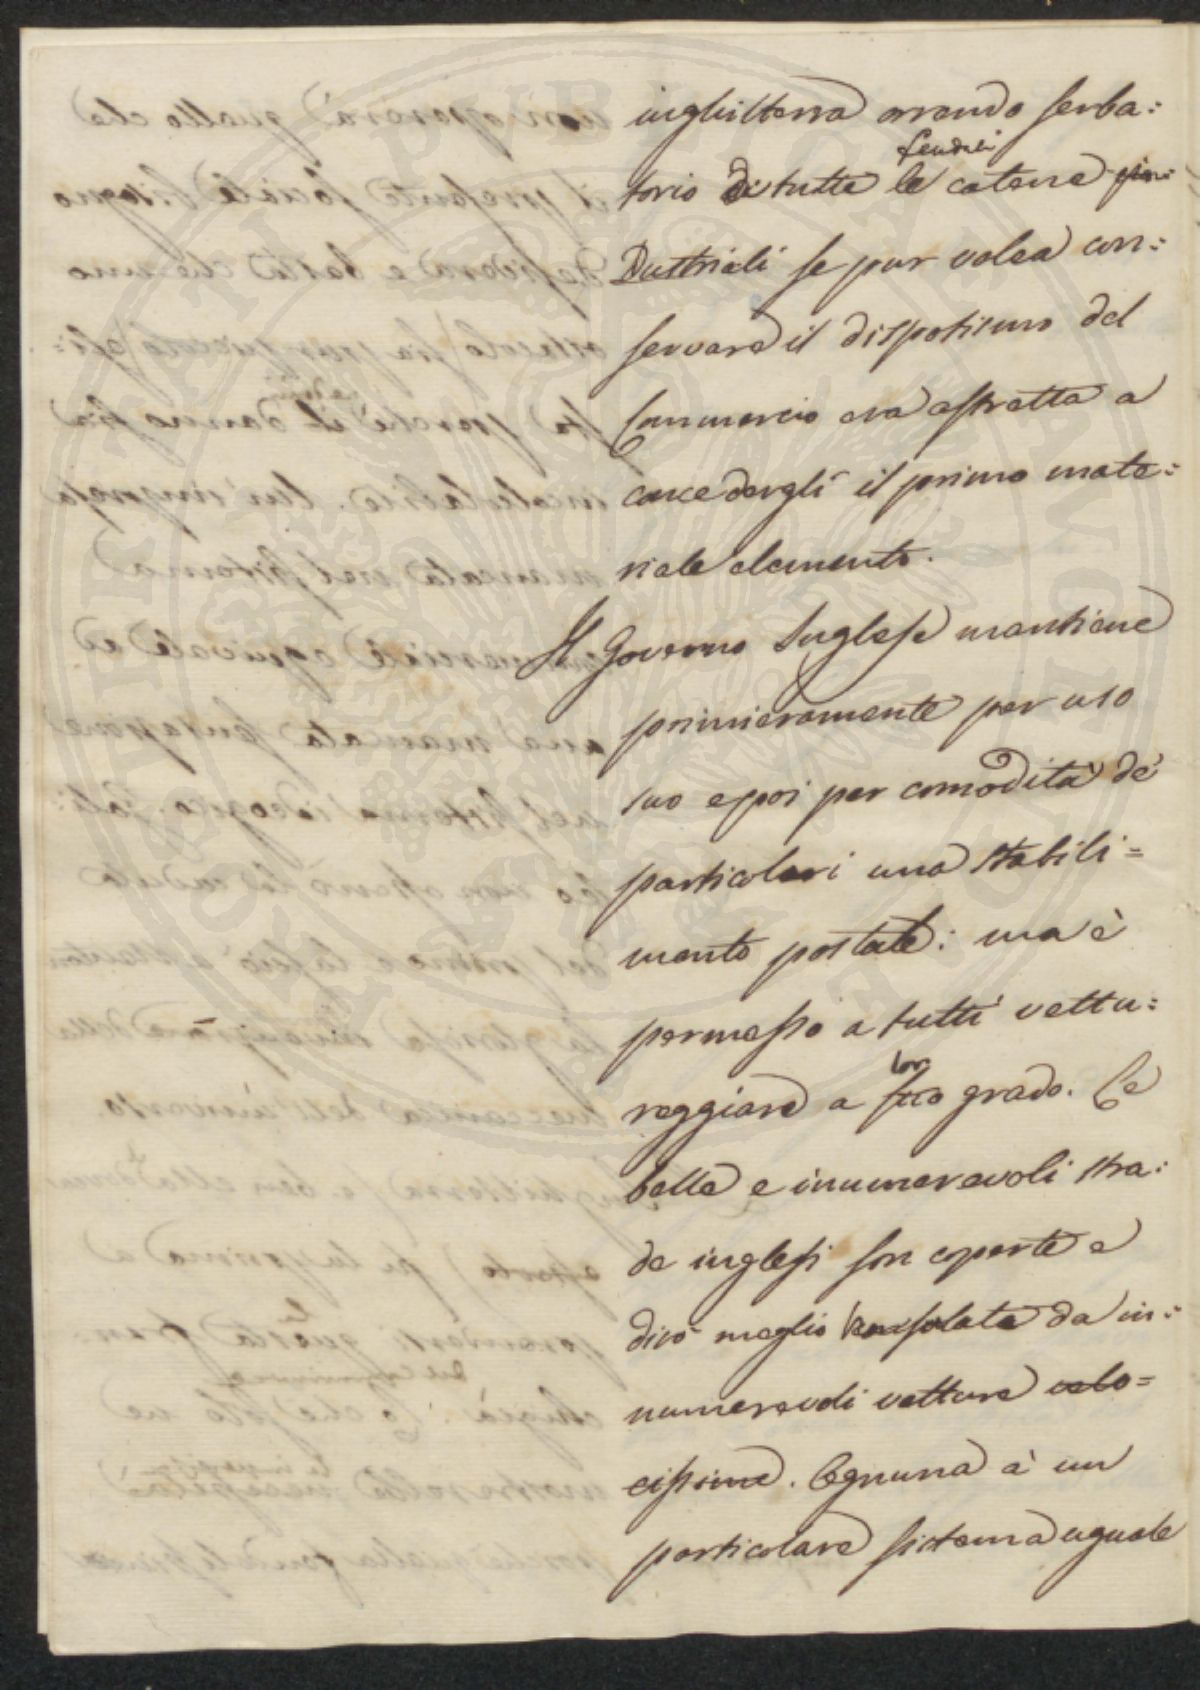 inghilterra orrendo serba:
torio di tutte le catene
feudali
Dustriali se pur volea con:
servare il dispotismo del
Commercio era astretta a
concedergli il primo mate:
riale elemento.
Il Governo Inglese mantiene
primieramente per uso
suo e poi per comodità de'
particolari uno stabili=
mento postale: ma è
permesso a tutti vettu:
reggiare a suo grado. Le
lor
belle e innumerevoli stra:
de inglesi son coperte e
dirò meglio da in:
numerevoli vetture velo=
cissime. Ognuna à un
particolare sistema uguale